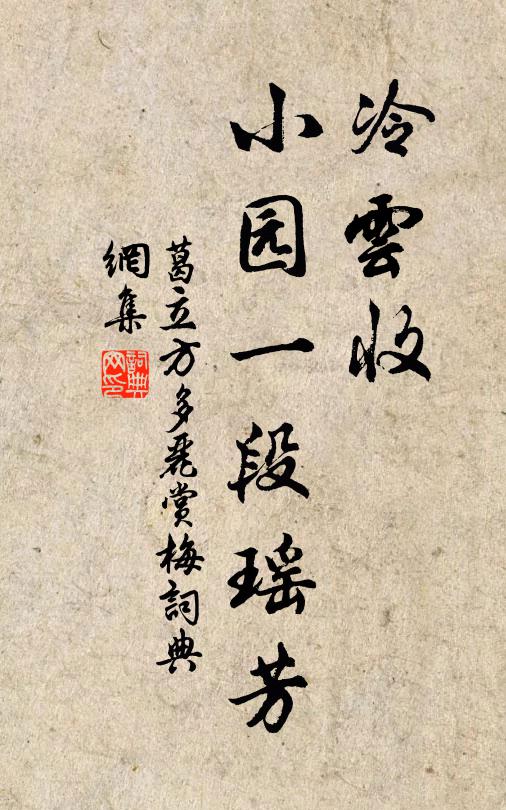 冷雲收
小园一段瑶芳
葛立方多麗賞梅詞典
網集
詞典網印